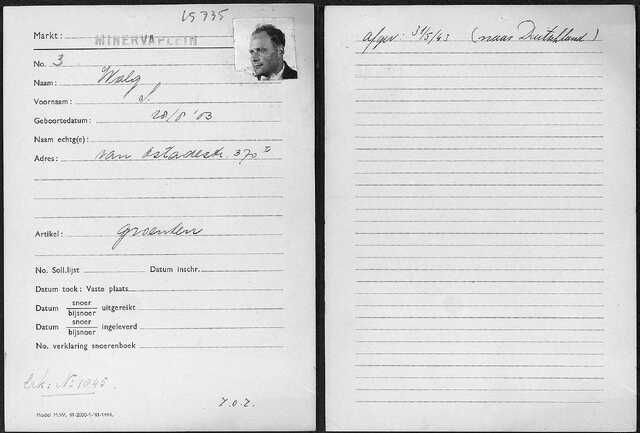 15735
Markt: MINERVAPLEIN
No. 3
Naam: Walg
Voornaam: S.
Geboortedatum: 28/8 '03
Naam echtg(e):
Adres: van Ostadestr. 370 II
Artikel: groenten
No. Soll.lijst Datum inschr.
Datum toek: Vaste plaats
Datum snoer/bijsnoer uitgereikt
Datum snoer/bijsnoer ingeleverd
No. verklaring snoerenboek
Erk: No 1045.
z.o.z.
Model M.W.
afgev. 31/5/43 (naar Duitschland)